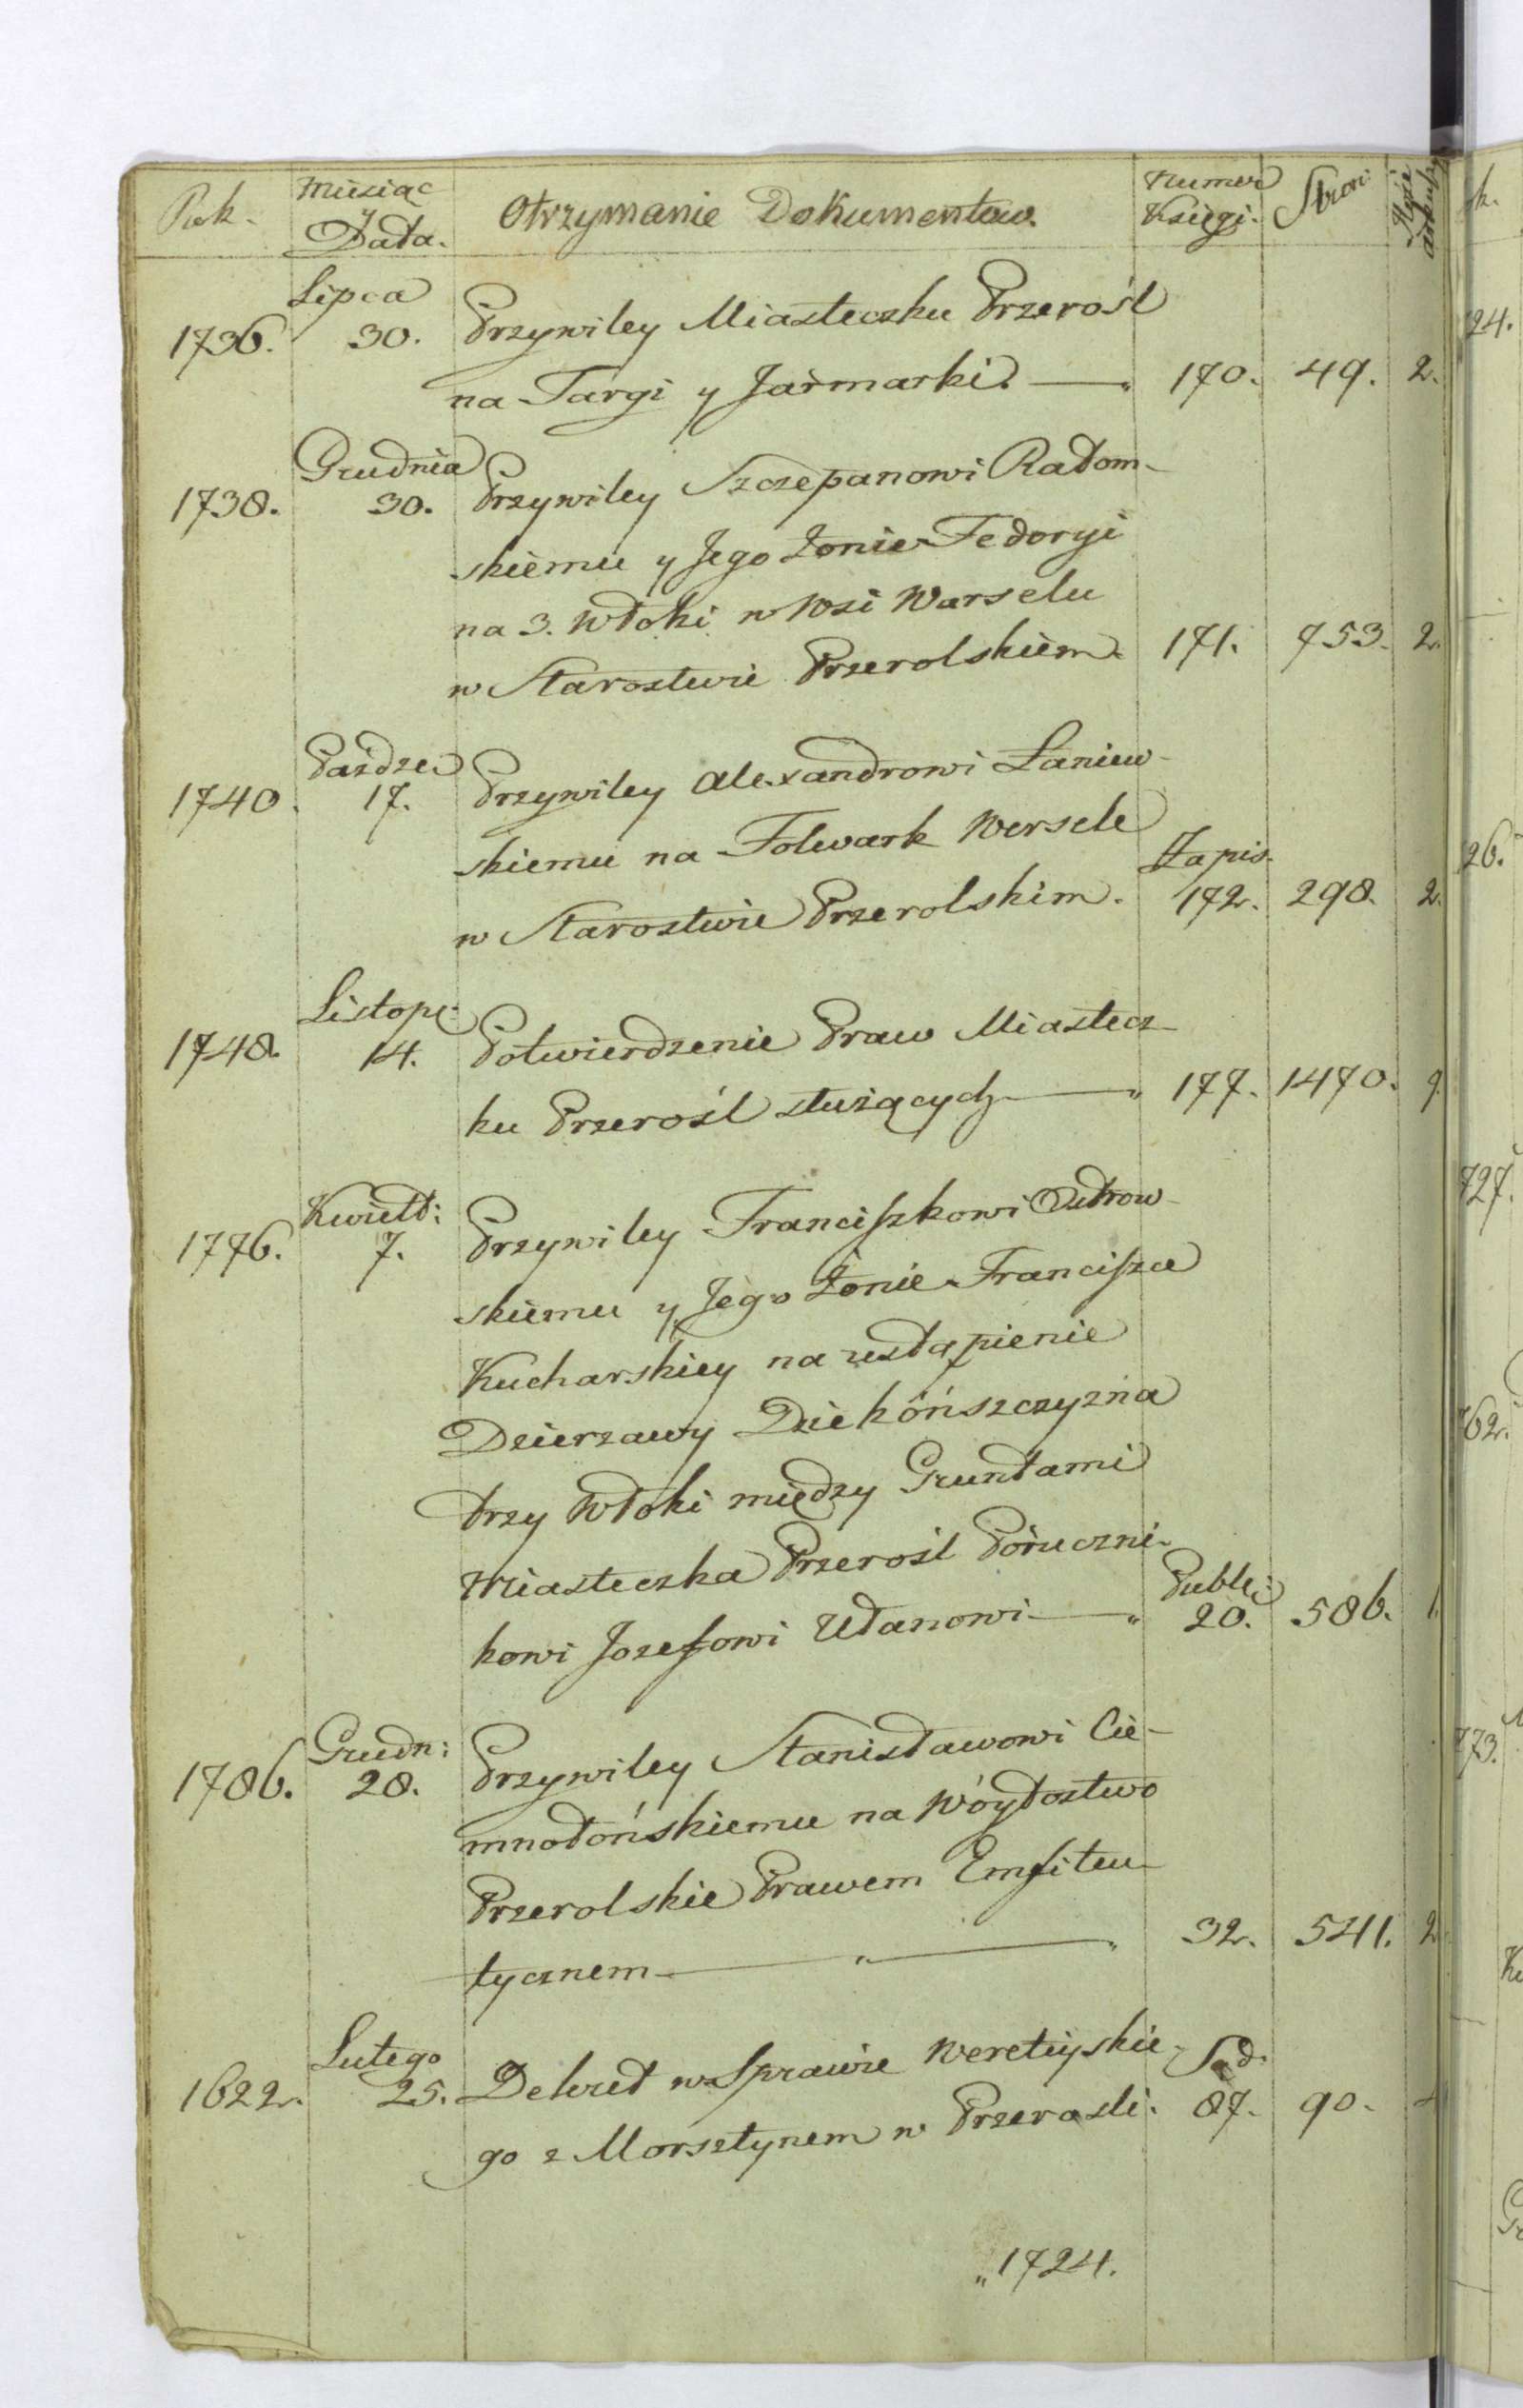 Rok. Miesiąc y Data. Otrzymanie Dokumentow. Numer Księgi. Stron:
Lipca
1736. 30. Przywiley Miasteczku Przerośl
na Targi y Jarmarki. — 170. 49. 2.
Grudnia
1738. 30. Przywiley Szczepanowi Radom-
skiemu y Jego Żonie Fedoryi
na 3. Włoki w Wsi Warselu
w Starostwie Przerolskiem. 171. 753. 2.
Paździe:
1740. 17. Przywiley Alexandrowi Łaniew-
skiemu na Folwark Wersele
w Starostwie Przerolskim. Zapis. 172. 298. 2.
Listop:
1748. 14. Potwierdzenie Praw Miastecz-
ku Przerośl służących — 177. 1470. 9.
Kwiet:
1776. 7. Przywiley Franciszkowi Ostrow-
skiemu y Jego Żonie Franciszce
Kucharskiey na ustąpienie
Dzierzawy Dziekońszczyzna
trzy Włoki między Gruntami
Miasteczka Przerośl Poruczni-
kowi Jozefowi Ułanowi — Publ: 20. 586. 1.
Grudn:
1786. 28. Przywiley Stanisławowi Cie-
mnołońskiemu na Wóytostwo
Przerolskie Prawem Emfiteu-
tycznem — 32. 541. 2
Lutego
1622. 25. Dekret w Sprawie Weretiyskie-
go z Morsztynem w Przerosli. Sąd. 87. 90. -
„1724.